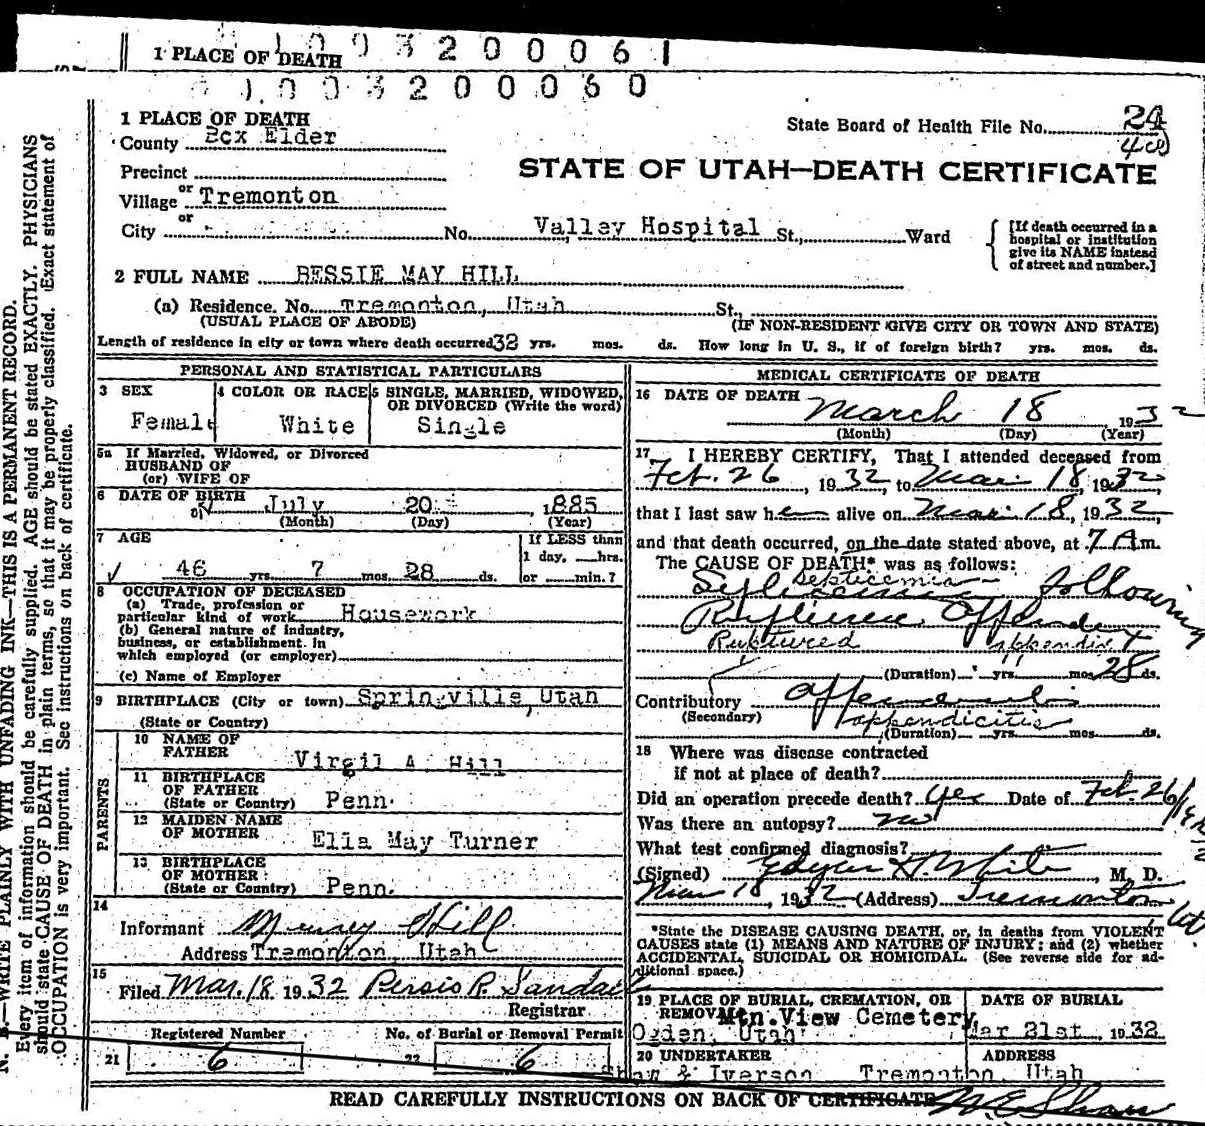 1 PLACE OF DEATH
1 0 0 3 2 0 0 0 6 1
1 0 0 3 2 0 0 0 6 0
1 PLACE OF DEATH
County Box Elder
State Board of Health File No. 24
Precinct
STATE OF UTAH—DEATH CERTIFICATE
Village or Tremonton
or
City No. Valley Hospital St., Ward
[If death occurred in a hospital or institution give its NAME instead of street and number.]
2 FULL NAME BESSIE MAY HILL
(a) Residence. No. Tremonton, Utah St.,
(USUAL PLACE OF ABODE) (IF NON-RESIDENT GIVE CITY OR TOWN AND STATE)
Length of residence in city or town where death occurred 32 yrs. mos. ds. How long in U. S., if of foreign birth? yrs. mos. ds.
PERSONAL AND STATISTICAL PARTICULARS
3 SEX
Female
4 COLOR OR RACE
White
5 SINGLE, MARRIED, WIDOWED, OR DIVORCED (Write the word)
Single
5a If Married, Widowed, or Divorced
HUSBAND OF
(or) WIFE OF
6 DATE OF BIRTH
July 20 , 1885
(Month) (Day) (Year)
7 AGE
46 yrs. 7 mos. 28 ds.
If LESS than
1 day, hrs.
or min.?
8 OCCUPATION OF DECEASED
(a) Trade, profession or
particular kind of work Housework
(b) General nature of industry,
business, or establishment. in
which employed (or employer)
(c) Name of Employer
9 BIRTHPLACE (City or town) Springville, Utah
(State or Country)
PARENTS
10 NAME OF
FATHER Virgil A Hill
11 BIRTHPLACE
OF FATHER
(State or Country) Penn.
12 MAIDEN NAME
OF MOTHER Ella May Turner
13 BIRTHPLACE
OF MOTHER
(State or Country) Penn.
14
Informant Hill
Address Tremonton, Utah
15
Filed Mar. 18 1932
Registrar
Registered Number No. of Burial or Removal Permit
21 6 22 6
MEDICAL CERTIFICATE OF DEATH
16 DATE OF DEATH
March 18 1932
(Month) (Day) (Year)
17 I HEREBY CERTIFY, That I attended deceased from
Feb. 26, 1932, to Mar 18, 1932
that I last saw her alive on Mar 18, 1932,
and that death occurred, on the date stated above, at 7 A.m.
The CAUSE OF DEATH* was as follows:
septicemia
Septicemia following
Ruptured Appendix
Ruptured appendix
(Duration) yrs. mos. 28 ds.
Contributory Appendicitis
(Secondary) appendicitis
(Duration) yrs. mos. ds.
18 Where was disease contracted
if not at place of death?
Did an operation precede death? yes Date of Feb. 26/1932
Was there an autopsy? no
What test confirmed diagnosis?
(Signed) Edgar H. White, M. D.
Mar 18, 1932 (Address) Tremonton Ut.
*State the DISEASE CAUSING DEATH, or, in deaths from VIOLENT
CAUSES state (1) MEANS AND NATURE OF INJURY; and (2) whether
ACCIDENTAL, SUICIDAL OR HOMICIDAL. (See reverse side for ad-
ditional space.)
19 PLACE OF BURIAL, CREMATION, OR
REMOVAL Mtn. View Cemetery
Ogden, Utah
DATE OF BURIAL
Mar 21st 1932
20 UNDERTAKER
Shaw & Iverson
ADDRESS
Tremonton, Utah
READ CAREFULLY INSTRUCTIONS ON BACK OF CERTIFICATE
N. B.—WRITE PLAINLY WITH UNFADING INK—THIS IS A PERMANENT RECORD.
Every item of information should be carefully supplied. AGE should be stated EXACTLY. PHYSICIANS
should state CAUSE OF DEATH in plain terms, so that it may be properly classified. Exact statement of
OCCUPATION is very important. See instructions on back of certificate.